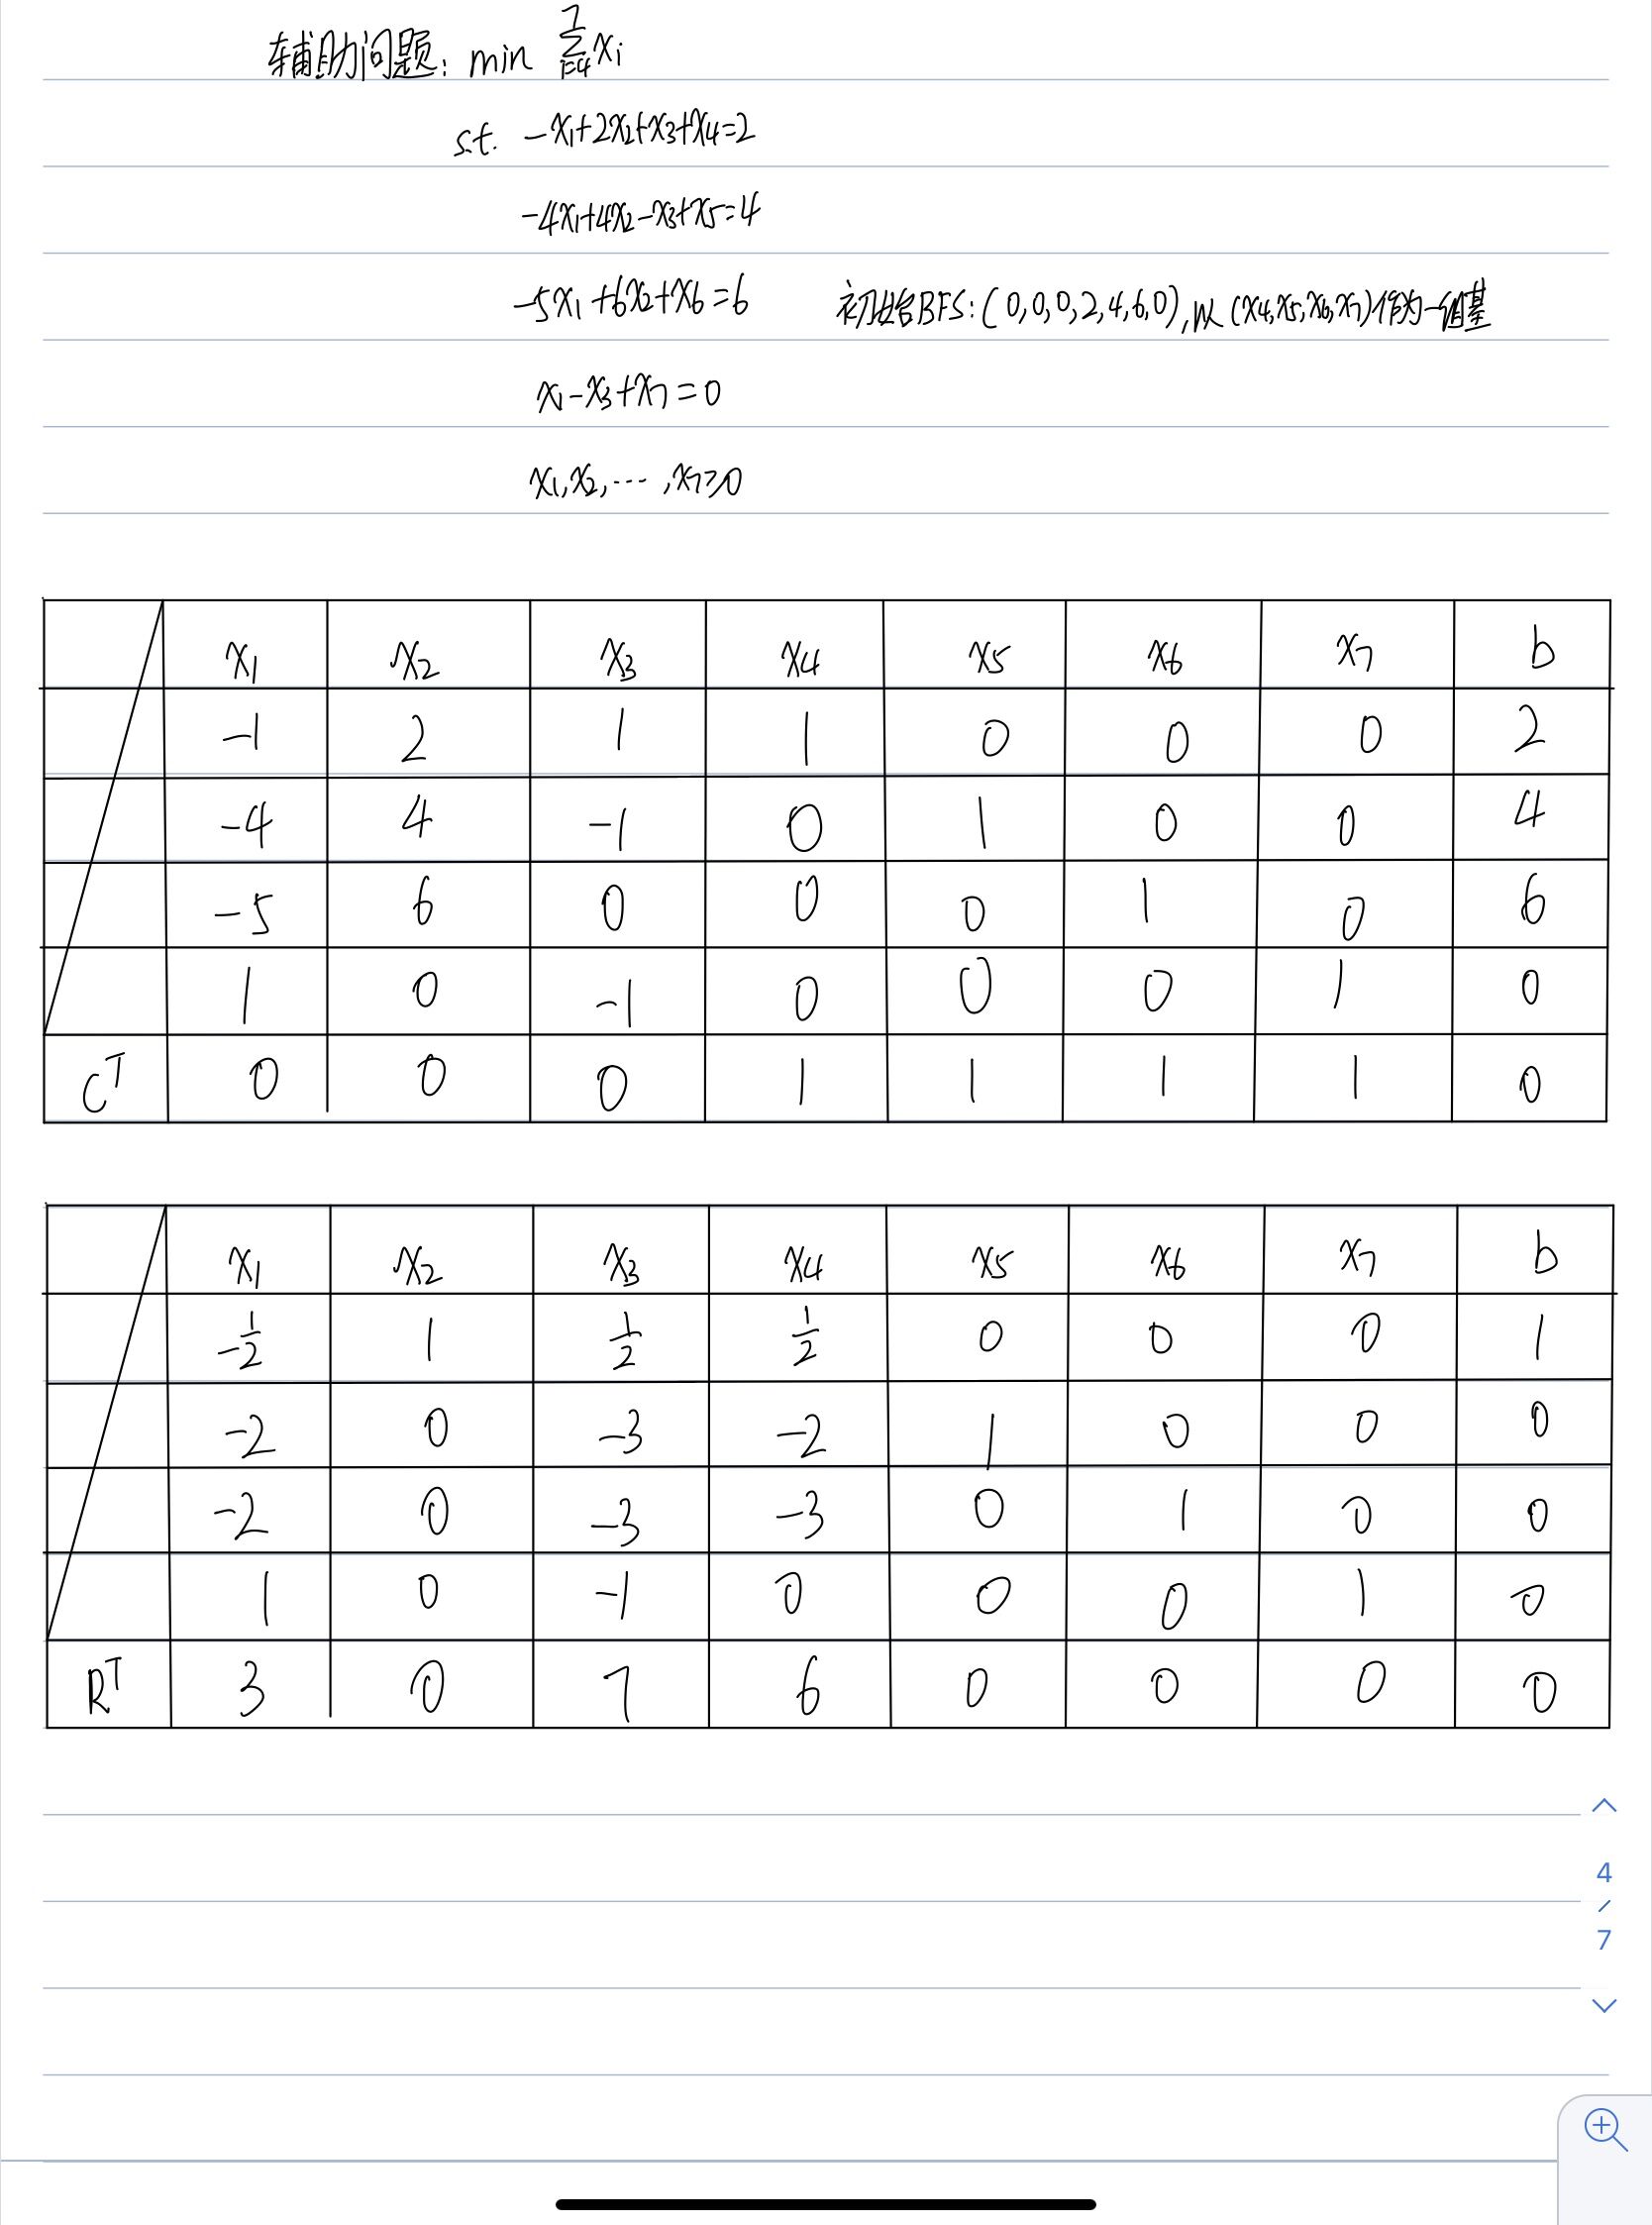 辅助问题: min ∑_{i=4}^{7} xᵢ
s.t. -x₁+2x₂+x₃+x₄=2
-4x₁+4x₂-x₃+x₅=4
-5x₁+6x₂+x₆=6 初始BFS: (0,0,0,2,4,6,0), 以(x₄,x₅,x₆,x₇)作为一组基
x₁-x₃+x₇=0
x₁,x₂,…,x₇≥0
x₁ x₂ x₃ x₄ x₅ x₆ x₇ b
-1 2 1 1 0 0 0 2
-4 4 -1 0 1 0 0 4
-5 6 0 0 0 1 0 6
1 0 -1 0 0 0 1 0
Cᵀ 0 0 0 1 1 1 1 0
x₁ x₂ x₃ x₄ x₅ x₆ x₇ b
-1/2 1 1/2 1/2 0 0 0 1
-2 0 -3 -2 1 0 0 0
-2 0 -3 -3 0 1 0 0
1 0 -1 0 0 0 1 0
Rᵀ 3 0 7 6 0 0 0 0
4
/
7